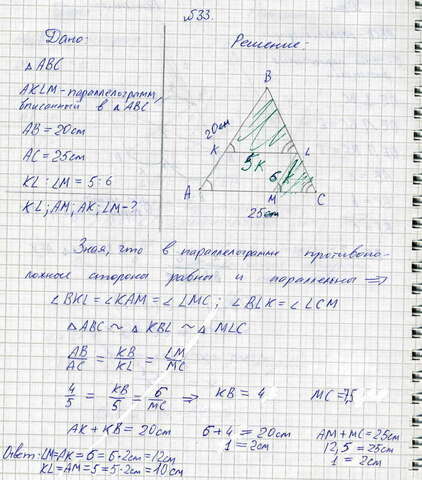 №33.
Дано:
△ABC
AKLM-параллелограмм,
вписанный в △ABC
AB=20см
AC=25см
KL:LM=5:6
KL; AM; AK; LM-?
Решение:
B
20см
K
L
5к
6к
A
M
C
25см
Зная, что в параллелограмме противопо-
ложные стороны равны и параллельны ⇒
∠BKL=∠KAM=∠LMC; ∠BLK=∠LCM
△ABC ~ △KBL ~ △MLC
AB/AC = KB/KL = LM/MC
4/5 = KB/5 = 6/MC ⇒ KB=4 MC=7,5
AK+KB=20см 6+4=20см AM+MC=25см
1=2см 12,5=25см
1=2см
Ответ: LM=AK=6=6·2см=12см
KL=AM=5=5·2см=10см